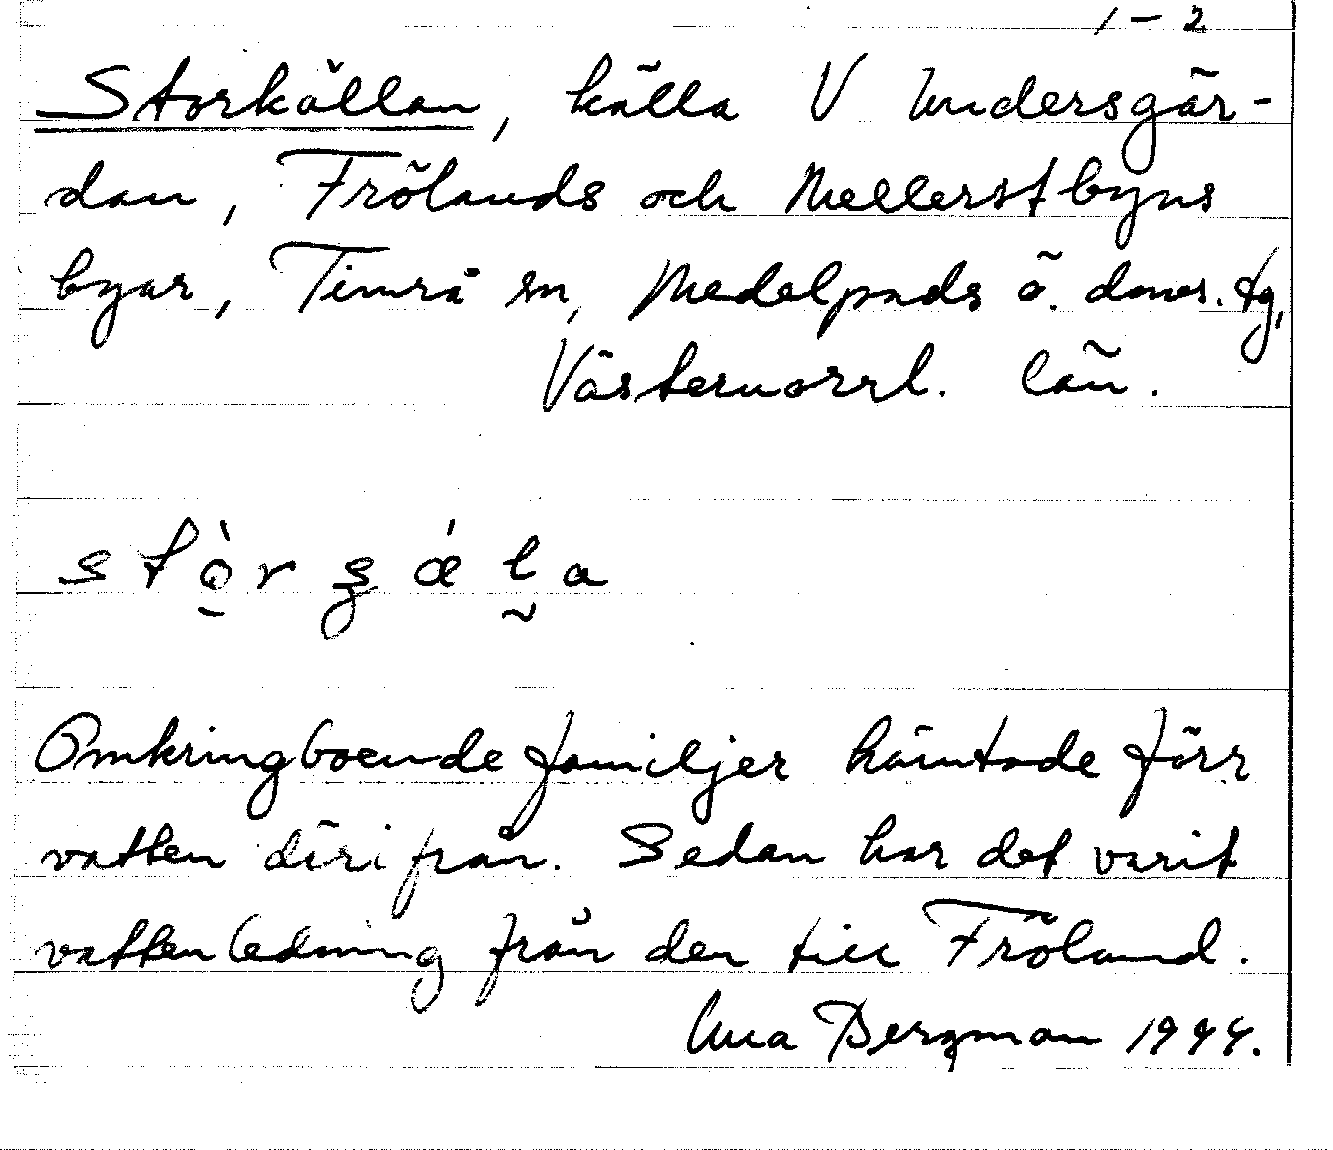 1-2
Storkällan, källa V Undersgår-
dan, Frölands och Mellerstbyns
byar, Timrå sn, Medelpads ö. doms. tg,
Västernorrl. län.
Omkringboende familjer hämtade förr
vatten därifrån. Sedan har det varit
vattenledning från den till Fröland.
Una Bergman 1944.